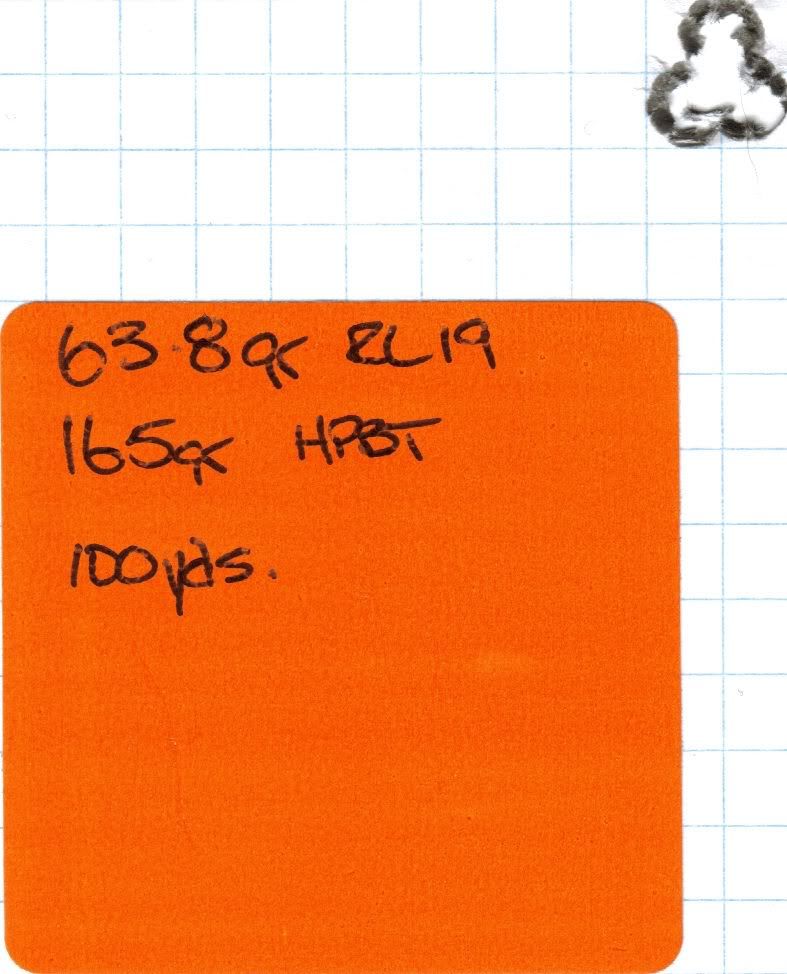 63.8gr RL19
165gr HPBT
100yds.